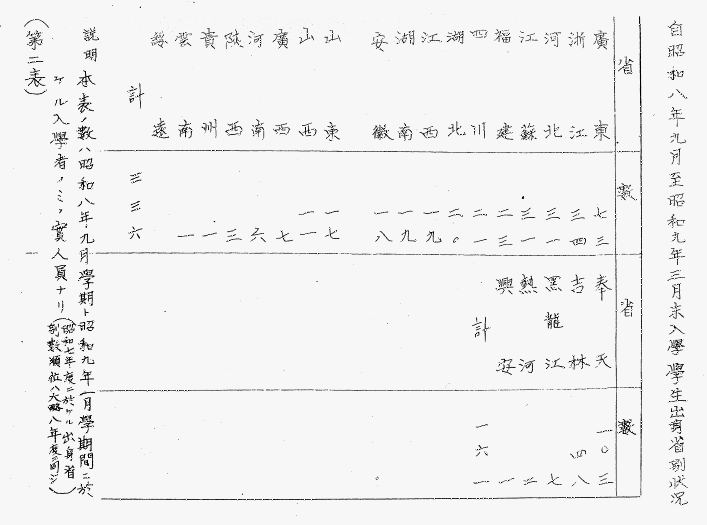 自昭和八年九月至昭和九年三月末入學學生出身省別狀況
省 數 省 數
廣東 七三 奉天 一〇三
浙江 三四 吉林 四八
河北 三一 黑龍江 七
江蘇 三一 熱河 二
福建 二三 興安 一
四川 二一 計 一六一
湖北 二〇
江西 一九
湖南 一九
安徽 一八
山東 一七
山西 一一
廣西 七
河南 六
陝西 三
貴州 一
雲南 一
綏遠
計 三三六
說明 本表ノ數ハ昭和八年九月學期ト昭和九年一月學期間ニ於
ケル入學者ノミノ實人員ナリ(昭和七年度ニ於ケル出身省
別數順位ハ大略八年度ニ同ジ)
(第二表)